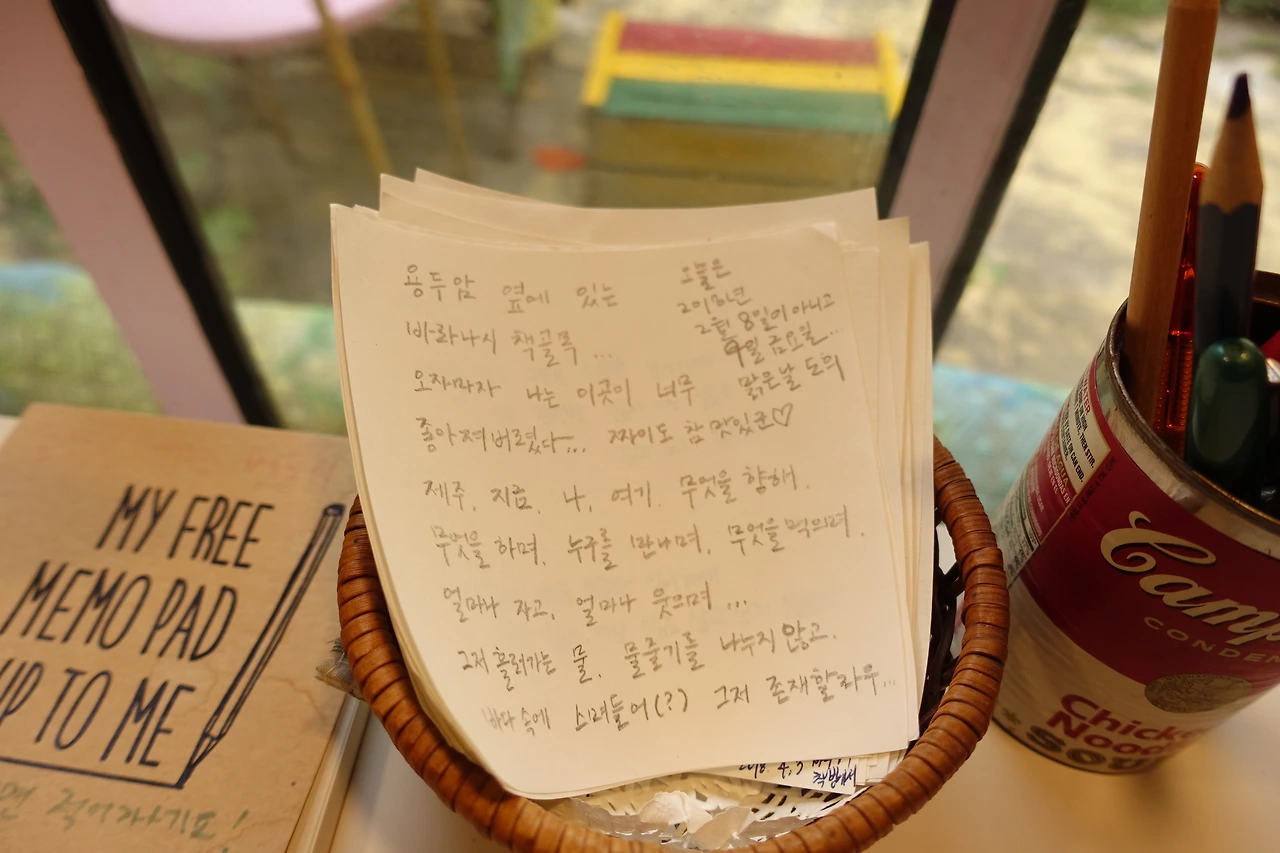 용두암 옆에 있는
바라나시 책골목 ...
오자마자 나는 이곳이 너무
좋아져버렸다... 짜이도 참 맛있군♡
오늘은
2018년
2월 8일이 아니고
9일 금요일...
맑은날 도의
제주, 지금, 나, 여기, 무엇을 향해,
무엇을 하며, 누구를 만나며, 무엇을 먹으며,
얼마나 자고, 얼마나 웃으며 ...
그저 흘러가는 물, 물줄기를 나누지 않고,
바다 속에 스며들어(?) 그저 존재할라우...
MY FREE
MEMO PAD
UP TO ME
적어가기도!
Campb
CONDEN
Chicke
Nood
SOU
책방에서